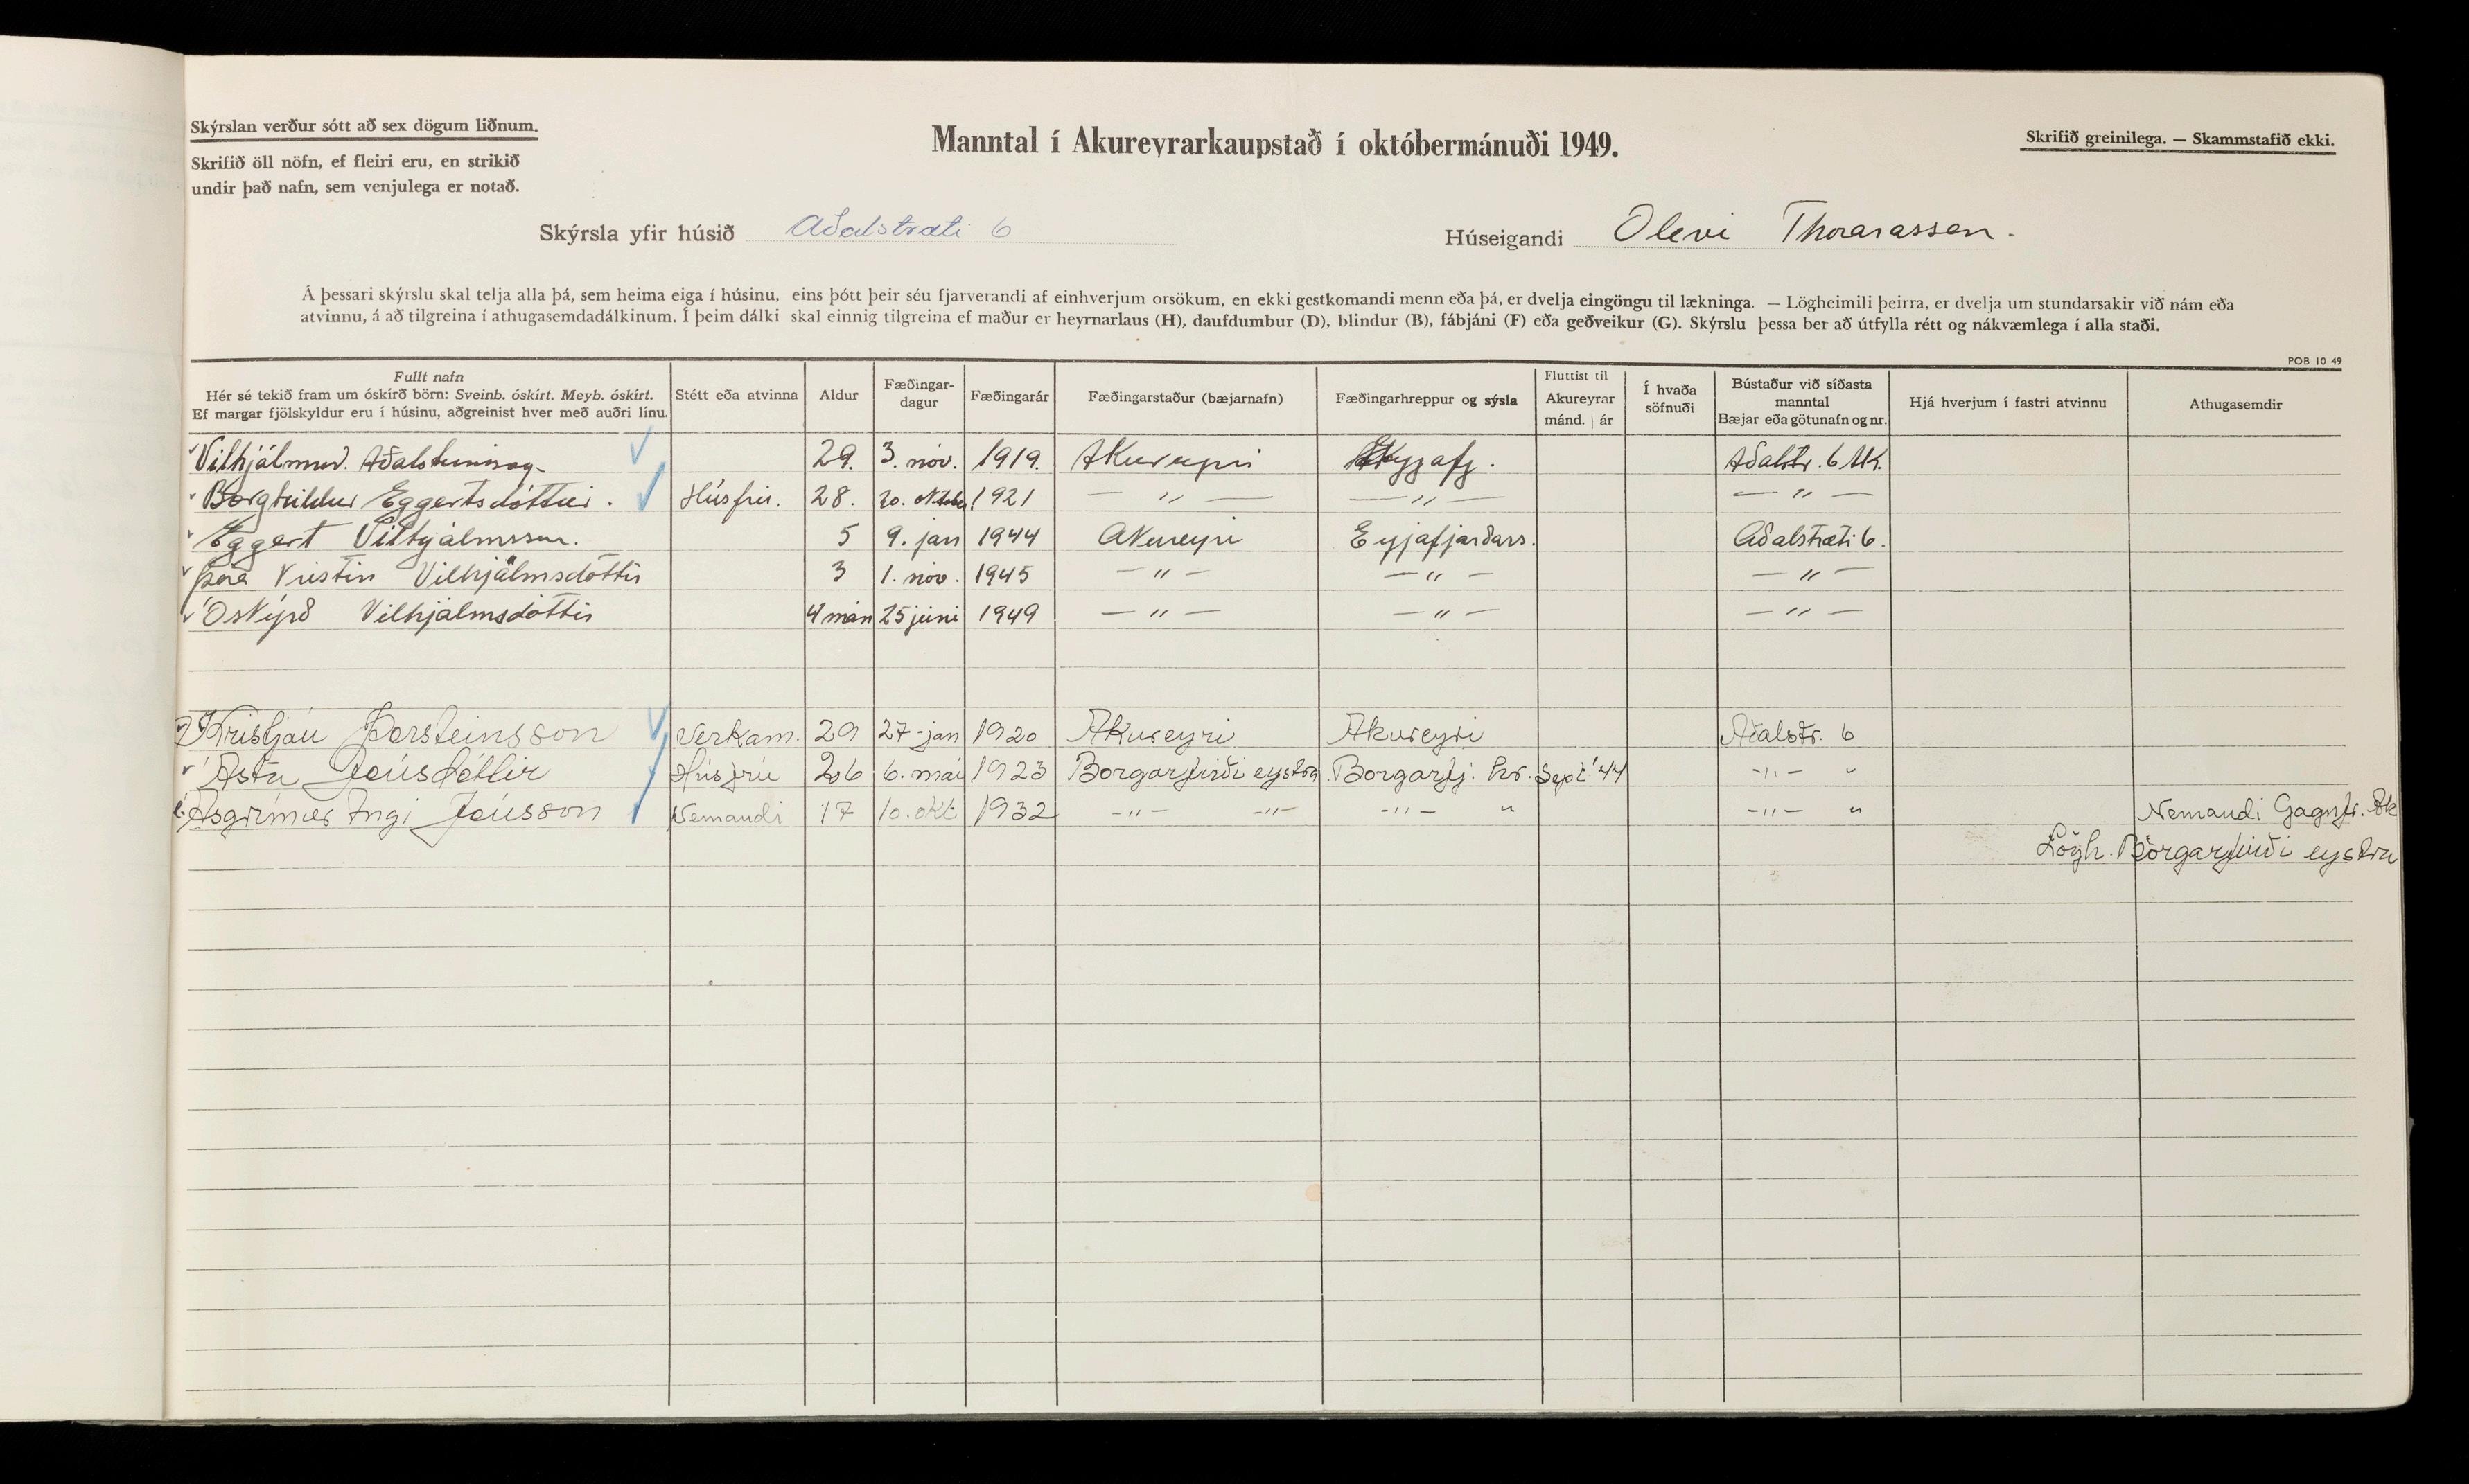 Skýrslan verður sótt að sex dögum liðnum.
Skrifið öll nöfn, ef fleiri eru, en strikið
undir það nafn, sem venjulega er notað.
Manntal í Akureyrarkaupstað í októbermánuði 1949.
Skrifið greinilega. — Skammstafið ekki.
Skýrsla yfir húsið Aðalstræti 6
Húseigandi Olevi Thorarassen.
Á þessari skýrslu skal telja alla þá, sem heima eiga í húsinu, eins þótt þeir séu fjarverandi af einhverjum orsökum, en ekki gestkomandi menn eða þá, er dvelja eingöngu til lækninga. — Lögheimili þeirra, er dvelja um stundarsakir við nám eða
atvinnu, á að tilgreina í athugasemdadálkinum. Í þeim dálki skal einnig tilgreina ef maður er heyrnarlaus (H), daufdumbur (D), blindur (B), fábjáni (F) eða geðveikur (G). Skýrslu þessa ber að útfylla rétt og nákvæmlega í alla staði.
POB 10 49
Fullt nafn
Hér sé tekið fram um óskírð börn: Sveinb. óskírt. Meyb. óskírt.
Ef margar fjölskyldur eru í húsinu, aðgreinist hver með auðri línu.
Stétt eða atvinna
Aldur
Fæðingar-
dagur
Fæðingarár
Fæðingarstaður (bæjarnafn)
Fæðingarhreppur og sýsla
Fluttist til
Akureyrar
mánd. | ár
Í hvaða
söfnuði
Bústaður við síðasta
manntal
Bæjar eða götunafn og nr.
Hjá hverjum í fastri atvinnu
Athugasemdir
Vilhjálmur. 29. 3. nóv. 1919. Akureyri Aðalstr. 6 Ak.
Borghildur Eggertsdóttir. Húsfrú. 28. 20. október 1921 — " — — " — — " —
Eggert Vilhjálmsson. 5 9. jan 1944 Akureyri Eyjafjarðars. Aðalstræti 6.
Þóra Kristín Vilhjálmsdóttir 3 1. nóv. 1945 — " — — " — — " —
Óskýrð Vilhjálmsdóttir 4 mán 25 júní 1949 — " — — " — — " —
Kristján Þorsteinsson Verkam. 29 27-jan 1920 Akureyri Akureyri Aðalstr. 6
Ásta Jónsdóttir Húsfrú 26 6. maí 1923 Borgarfirði eystra Borgarfj. hr. Sept '44 -"- "
Ásgrímur Ingi Jónsson Nemandi 17 10. okt 1932 -"- -"- -"- " -"- " Nemandi Gagnfr. Ak
Lögh. Borgarfirði eystra